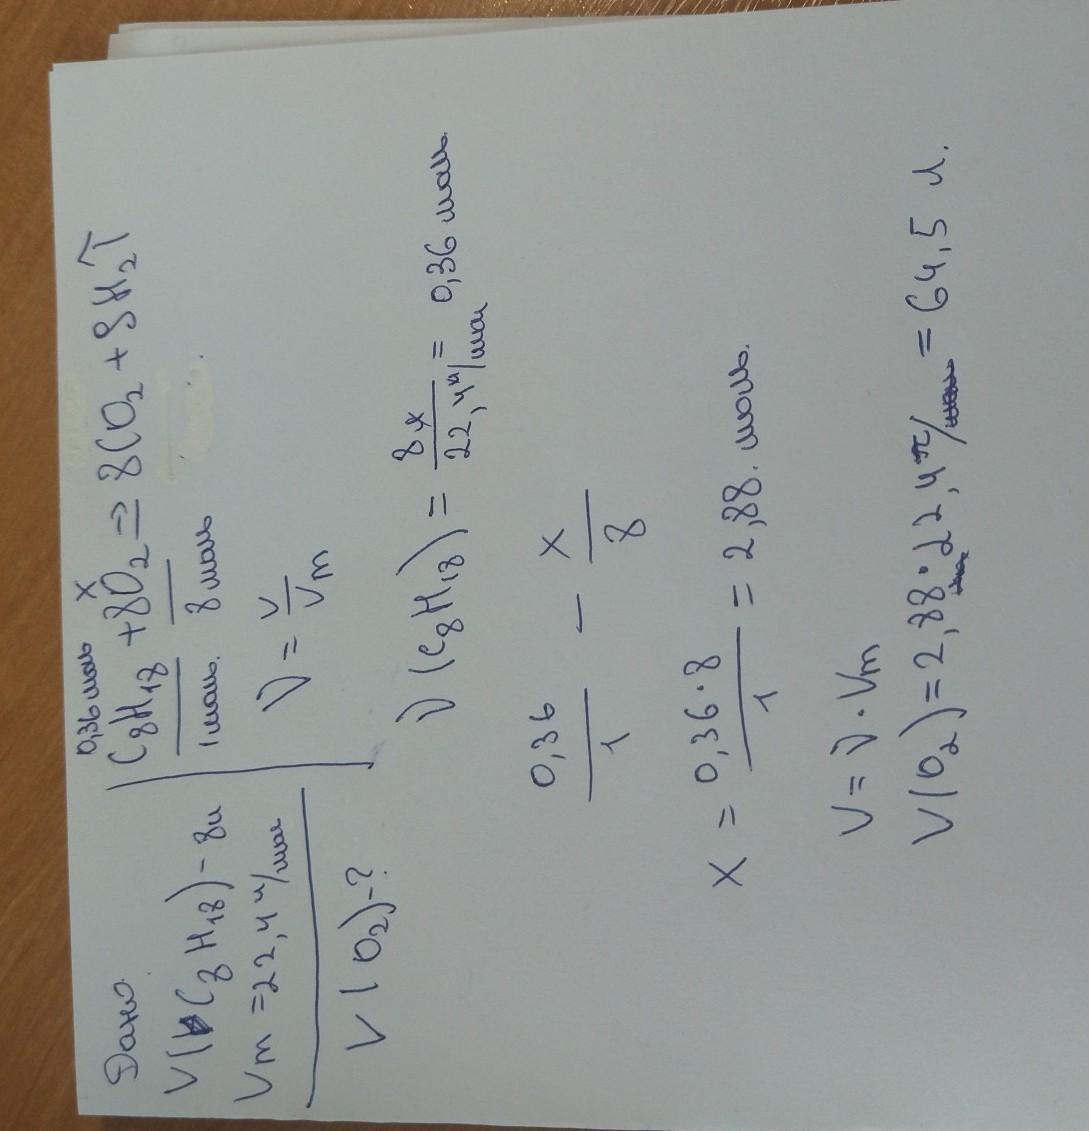 Дано.
V(C₈H₁₈) - 8л
Vm = 22,4 л/мол
V(O₂) - ?
0,36 моль x
C₈H₁₈ + 8O₂ => 8CO₂ + 9H₂↑
1 моль. 8 моль
ν = V/Vm
ν(C₈H₁₈) = 8л/22,4 л/мол = 0,36 моль.
0,36/1 — x/8
x = 0,36·8/1 = 2,88. моль.
V = ν · Vm
V(O₂) = 2,88 · 22,4 л/ = 64,5 л.